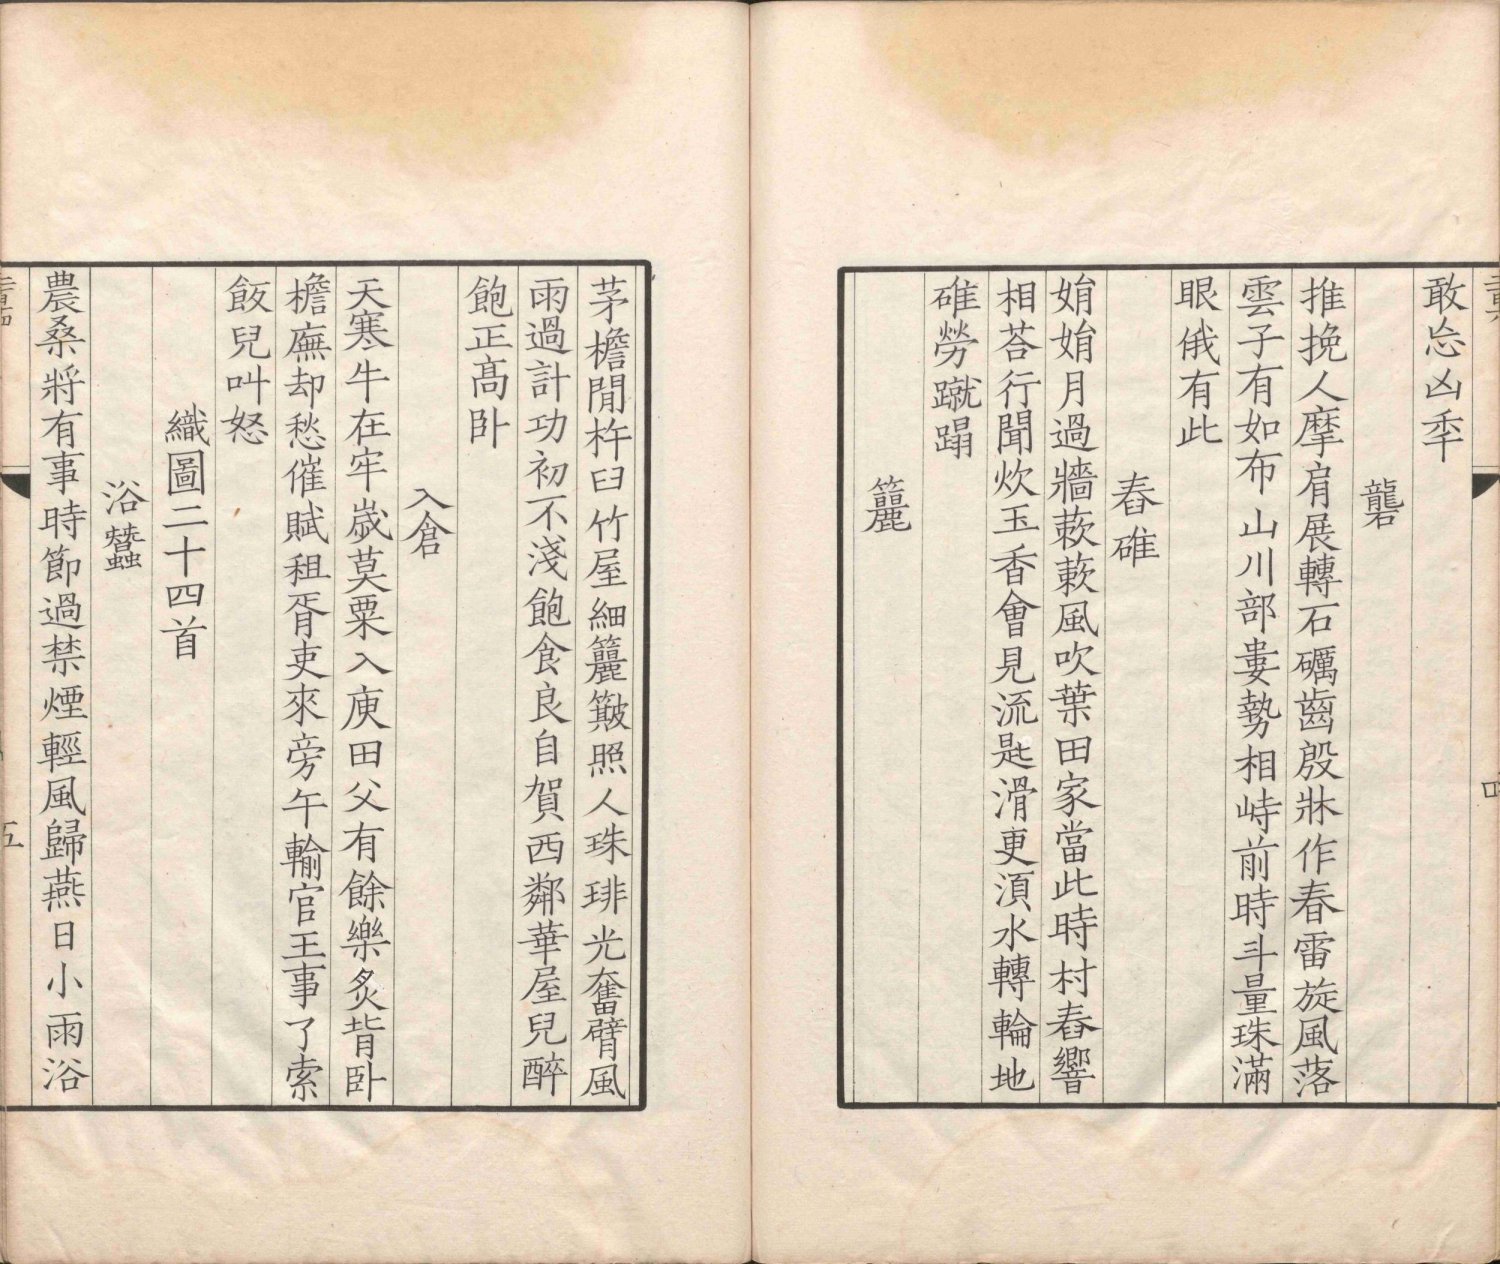 敢忘凶秊
礱
推挽人摩肩展轉石礪齒殷牀作春雷旋風落
雲子有如布山川部婁勢相峙前時斗量珠滿
眼俄有此
舂碓
娟娟月過牆蔌蔌風吹葉田家當此時村舂響
相荅行聞炊玉香會見流匙滑更湏水轉輪地
碓勞蹴蹋
簏
茅檐閒杵臼竹屋細簏簸照人珠琲光奮臂風
雨過計功初不淺飽食良自賀西鄰華屋兒醉
飽正高卧
入倉
天寒牛在牢歲莫粟入庾田父有餘樂炙背卧
檐廡却愁催賦租胥吏來旁午輸官王事了索
飯兒叫怒
織圖二十四首
浴蠶
農桑將有事時節過禁煙輕風歸燕日小雨浴
五